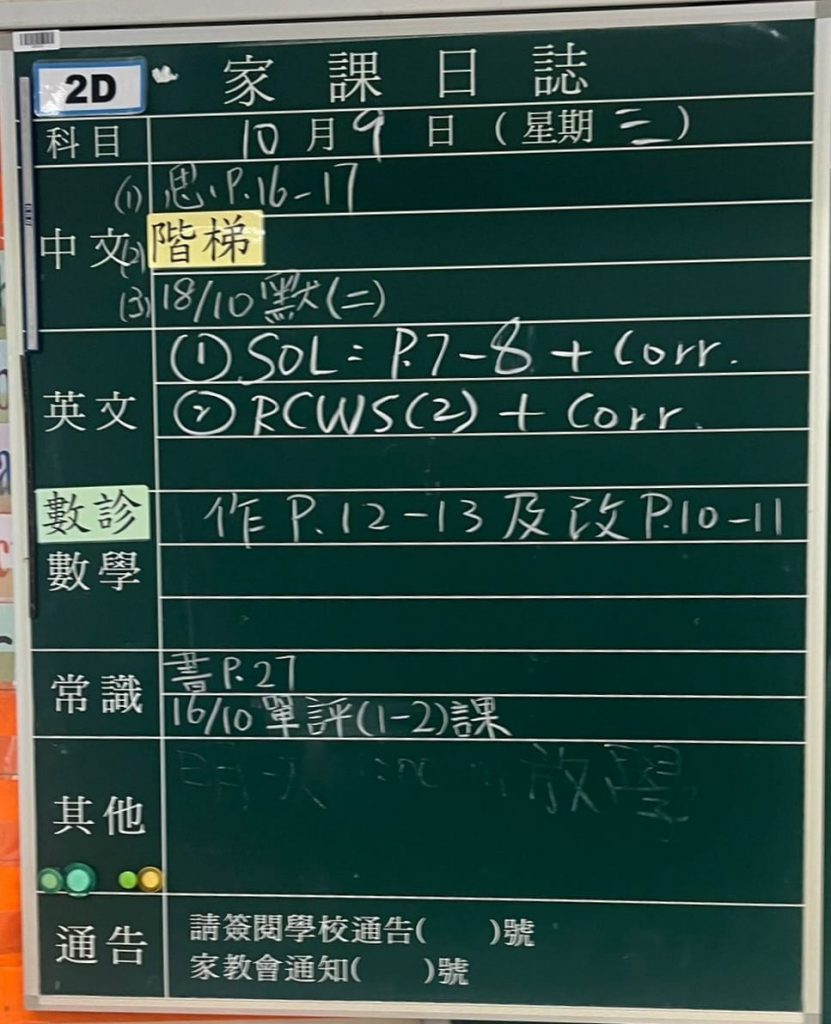 2D 家課日誌
科目 10月9日(星期三)
中文 (1) 思.P.16-17
(2) 階梯
(3) 18/10 默(二)
英文 ① SOL = P.7-8 + Corr.
② RCWS(2) + Corr.
數診 作 P.12-13 及改 P.10-11
數學
常識 書 P.27
16/10 單評(1-2)課
其他 明天 放學
通告 請簽閱學校通告( )號
家教會通知( )號